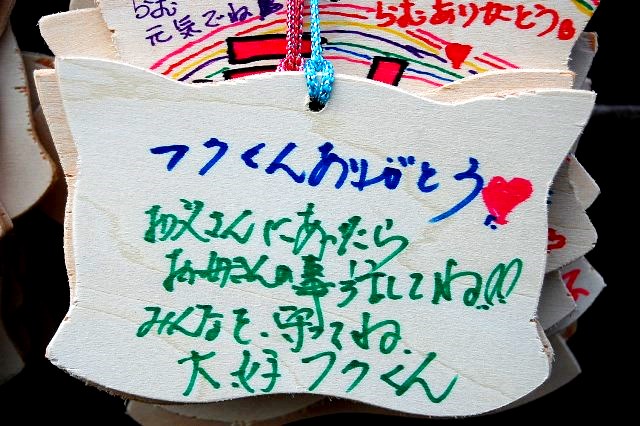 らむ
元気でね
らむありがとう
フクくんありがとう
お父さんにあったら
お母さんの事
してね!!
みんなを、守ってね、
大好フクくん